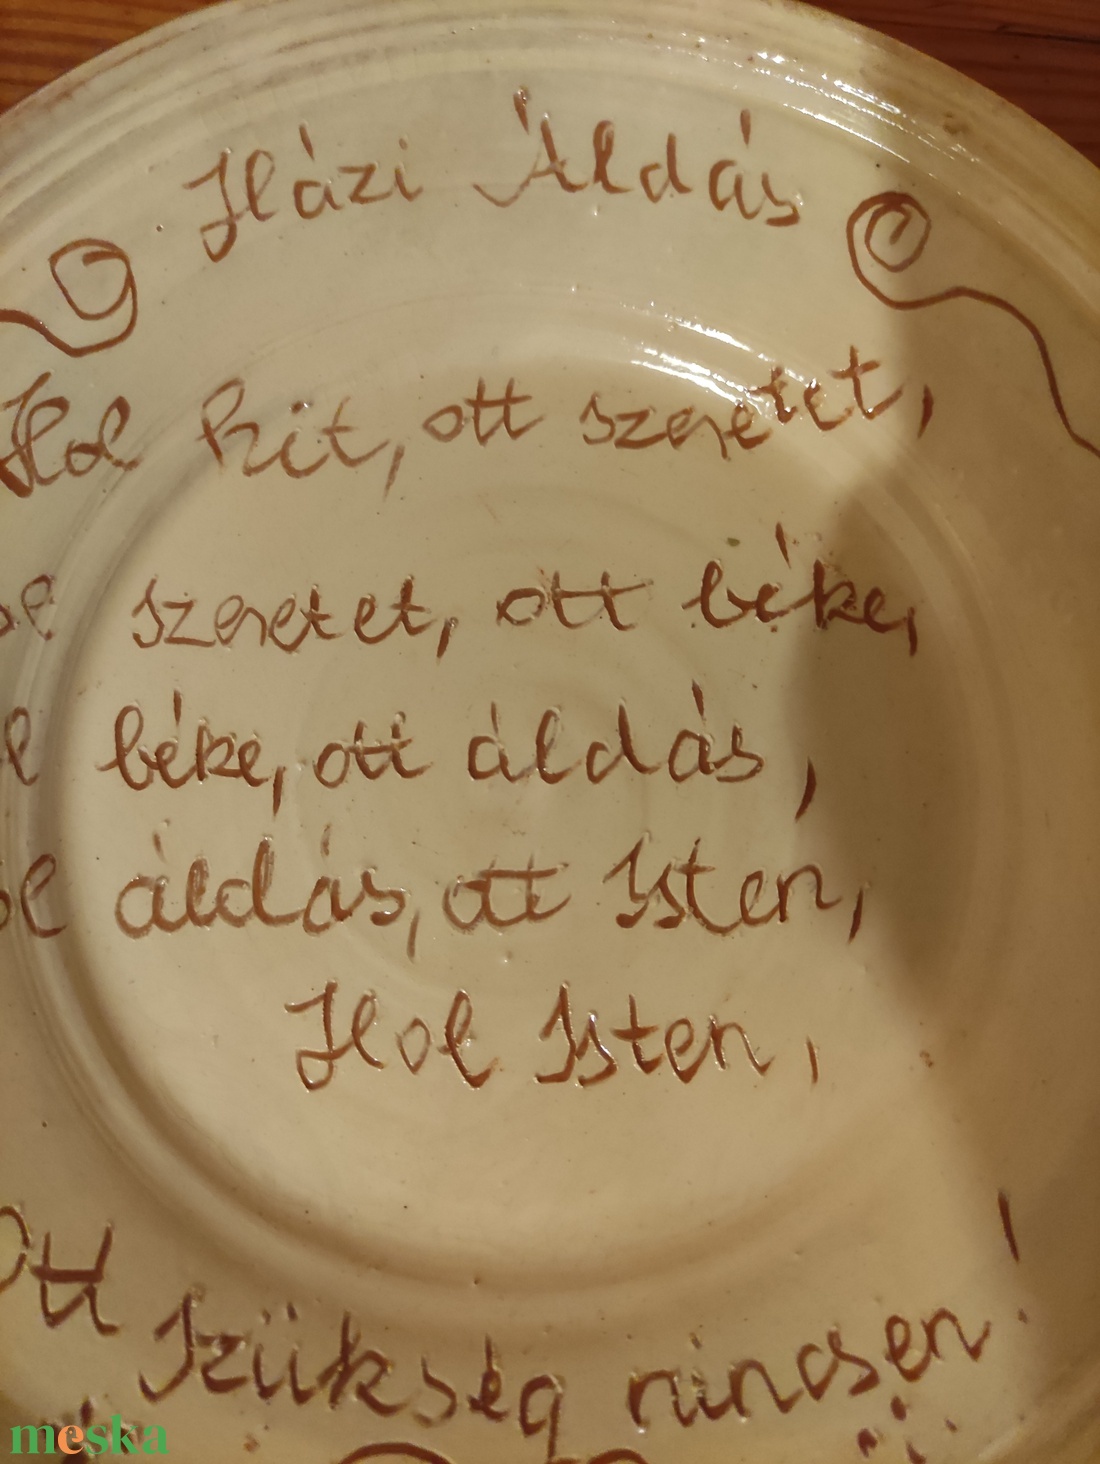 Házi Áldás
Hol hit, ott szeretet,
szeretet, ott béke,
béke, ott áldás,
áldás, ott Isten,
Hol Isten,
Ott
szükség nincsen!
meska